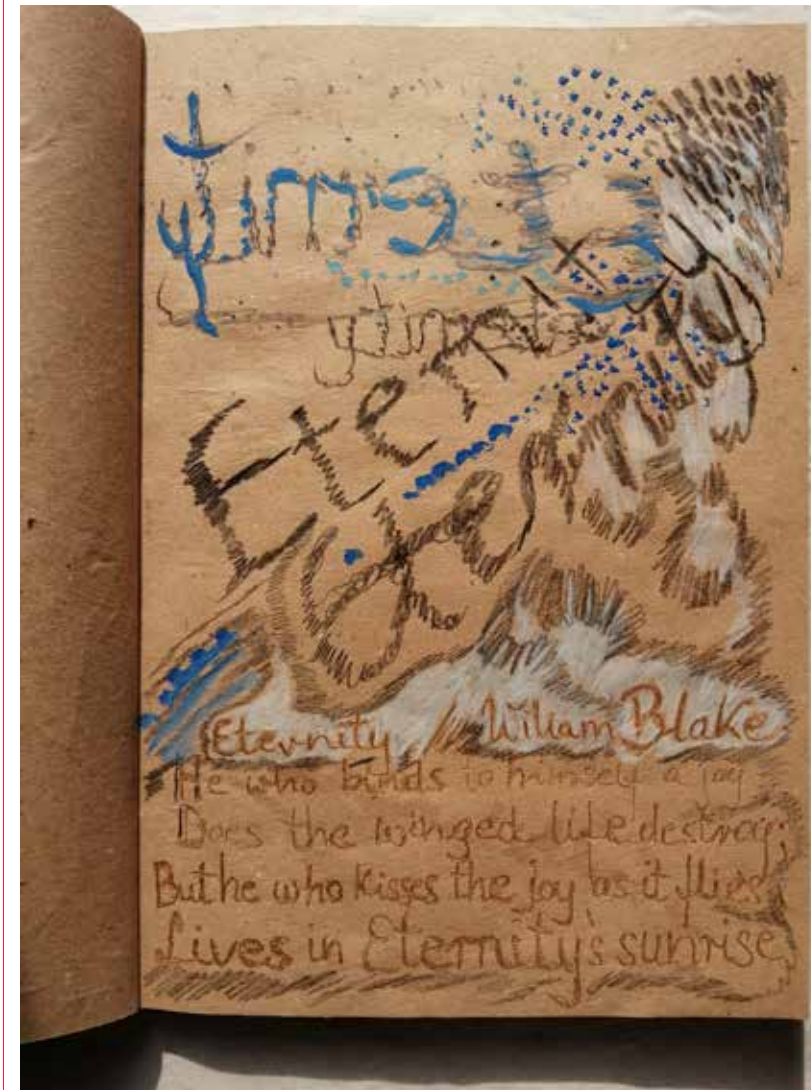 Eternity
Eternity
Eternity William Blake
He who binds to himself a joy
Does the winged life destroy;
But he who kisses the joy as it flies
Lives in Eternity's sunrise